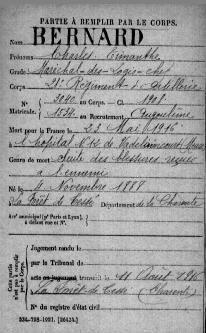 PARTIE À REMPLIR PAR LE CORPS.
Nom BERNARD
Prénoms Charles
Grade Maréchal-des-Logis-chef
Corps 21e Régiment d'Artillerie
N° 3240 au Corps. — Cl. 1908
Matricule. 1534 au Recrutement Angoulême
Mort pour la France le 23 Mai 1916
à l'hôpital N° 12 de Vadelaincourt Meuse
Genre de mort suite de blessures reçues
à l'ennemi
Né le 4 Novembre 1888
La Forêt de Tessé Département de la Charente
Arr municipal (pr Paris et Lyon),
à défaut rue et N°.
Cette partie
n'est pas à remplir
par le Corps.
Jugement rendu le
par le Tribunal de
acte ou jugement transcrit le 11 Août 1916
à La Forêt de Tessé (Charente)
N° du registre d'état civil
534-708-1921. [26434.]